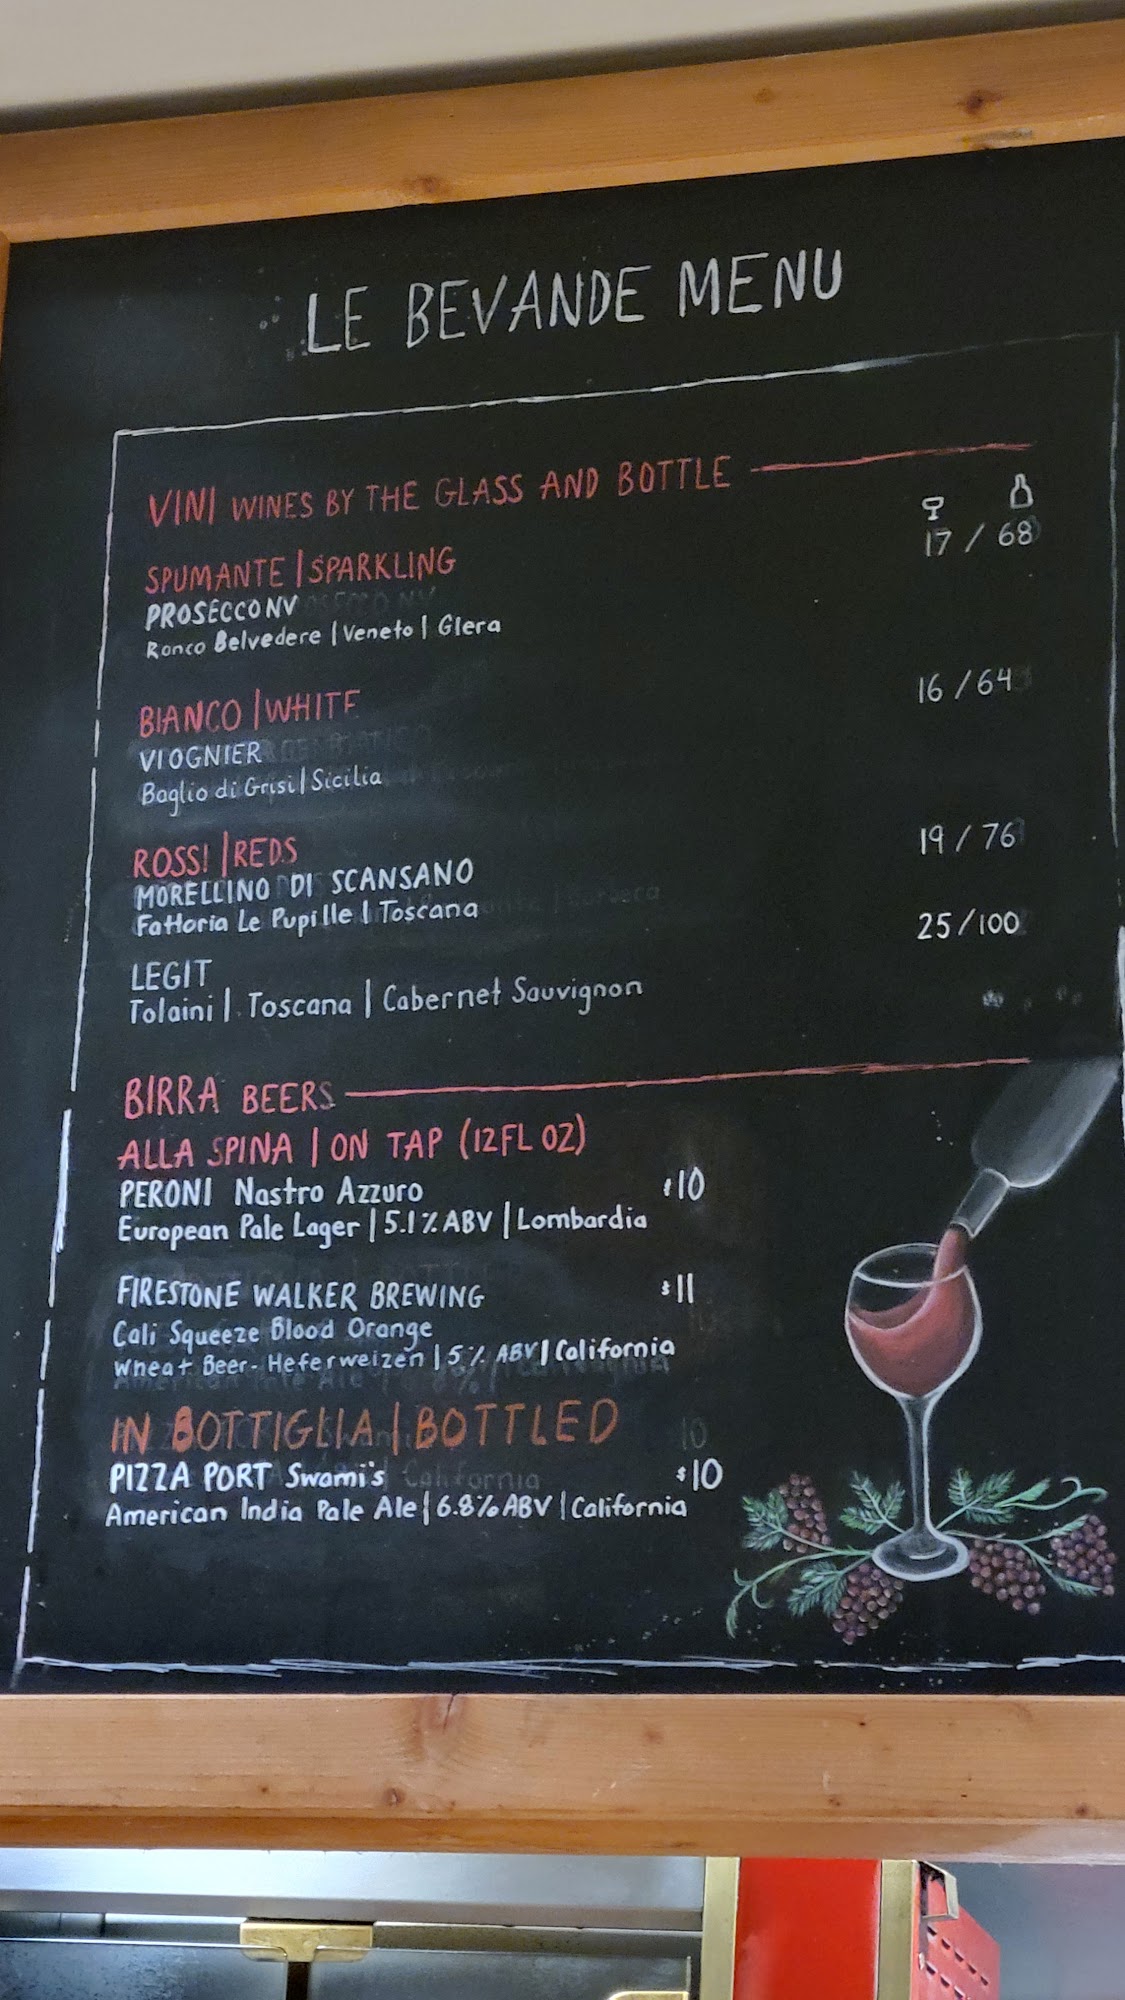 LE BEVANDE MENU
VINI WINES BY THE GLASS AND BOTTLE
17 / 68
SPUMANTE | SPARKLING
PROSECCO NV
Ronco Belvedere | Veneto | Glera
16 / 64
BIANCO | WHITE
VIOGNIER
Baglio di Grisi | Sicilia
19 / 76
ROSSI | REDS
MORELLINO DI SCANSANO
Fattoria Le Pupille | Toscana
25 / 100
LEGIT
Tolaini | Toscana | Cabernet Sauvignon
BIRRA BEERS
ALLA SPINA | ON TAP (12FL OZ)
PERONI Nastro Azzuro $10
European Pale Lager | 5.1% ABV | Lombardia
FIRESTONE WALKER BREWING $11
Cali Squeeze Blood Orange
Wheat Beer- Heferweizen | 5% ABV | California
IN BOTTIGLIA | BOTTLED
PIZZA PORT Swami's $10
American India Pale Ale | 6.8% ABV | California